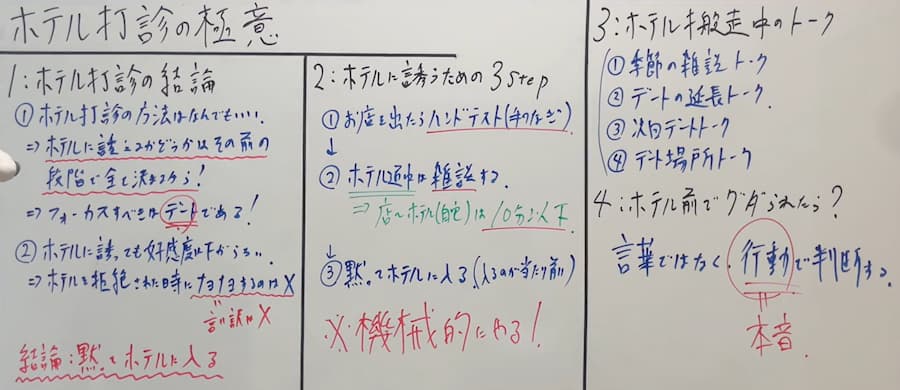 ホテル打診の極意
1:ホテル打診の結論
① ホテル打診の方法はなんでもいい.
⇒ ホテルに誘えるかどうかはその前の
段階で全て決まるから!
⇒ フォーカスすべきはデートである!
② ホテルに誘っても好感度は下がらない.
⇒ ホテルを拒絶された時にナヨナヨするのは×
=
言い訳は×
結論:黙ってホテルに入る
2:ホテルに誘うための3step
① お店を出たらハンドテスト(手つなぎ)
↓
② ホテル道中は雑談する.
⇒ 店〜ホテル(自宅)は10分以下
↓
③ 黙ってホテルに入る.(入るのが当たり前)
※機械的にやる!
3:ホテル搬送中のトーク
① 季節の雑談トーク
② デートの延長トーク
③ 次回デートトーク
④ デート場所トーク
4:ホテル前でグダられたら?
言葉ではなく、行動で判断する.
=
本音.